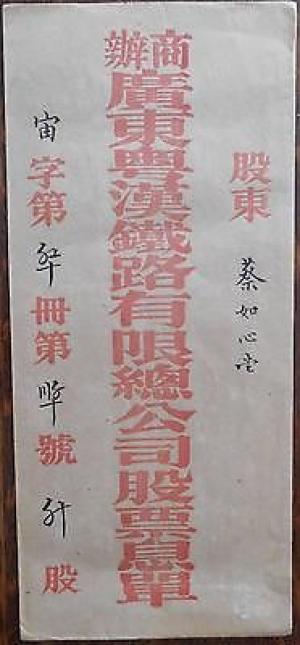 股東 蔡如心堂
商辦
廣東粵漢鐵路有限總公司股票息單
宙字第 冊第 號 股